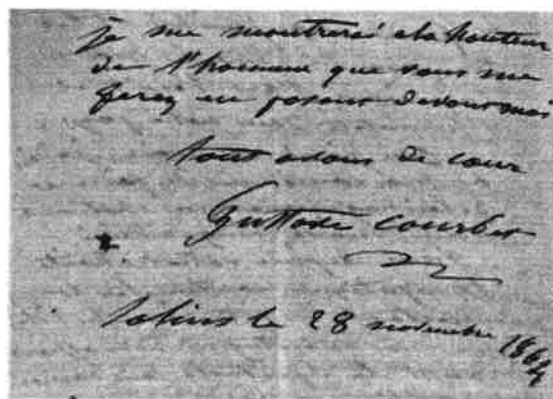 je me montrerai a la hauteur
de l'honneur que vous me
ferez en posant devant moi
tout a vous de cœur
Gustave Courbet
Salins le 28 novembre 1864